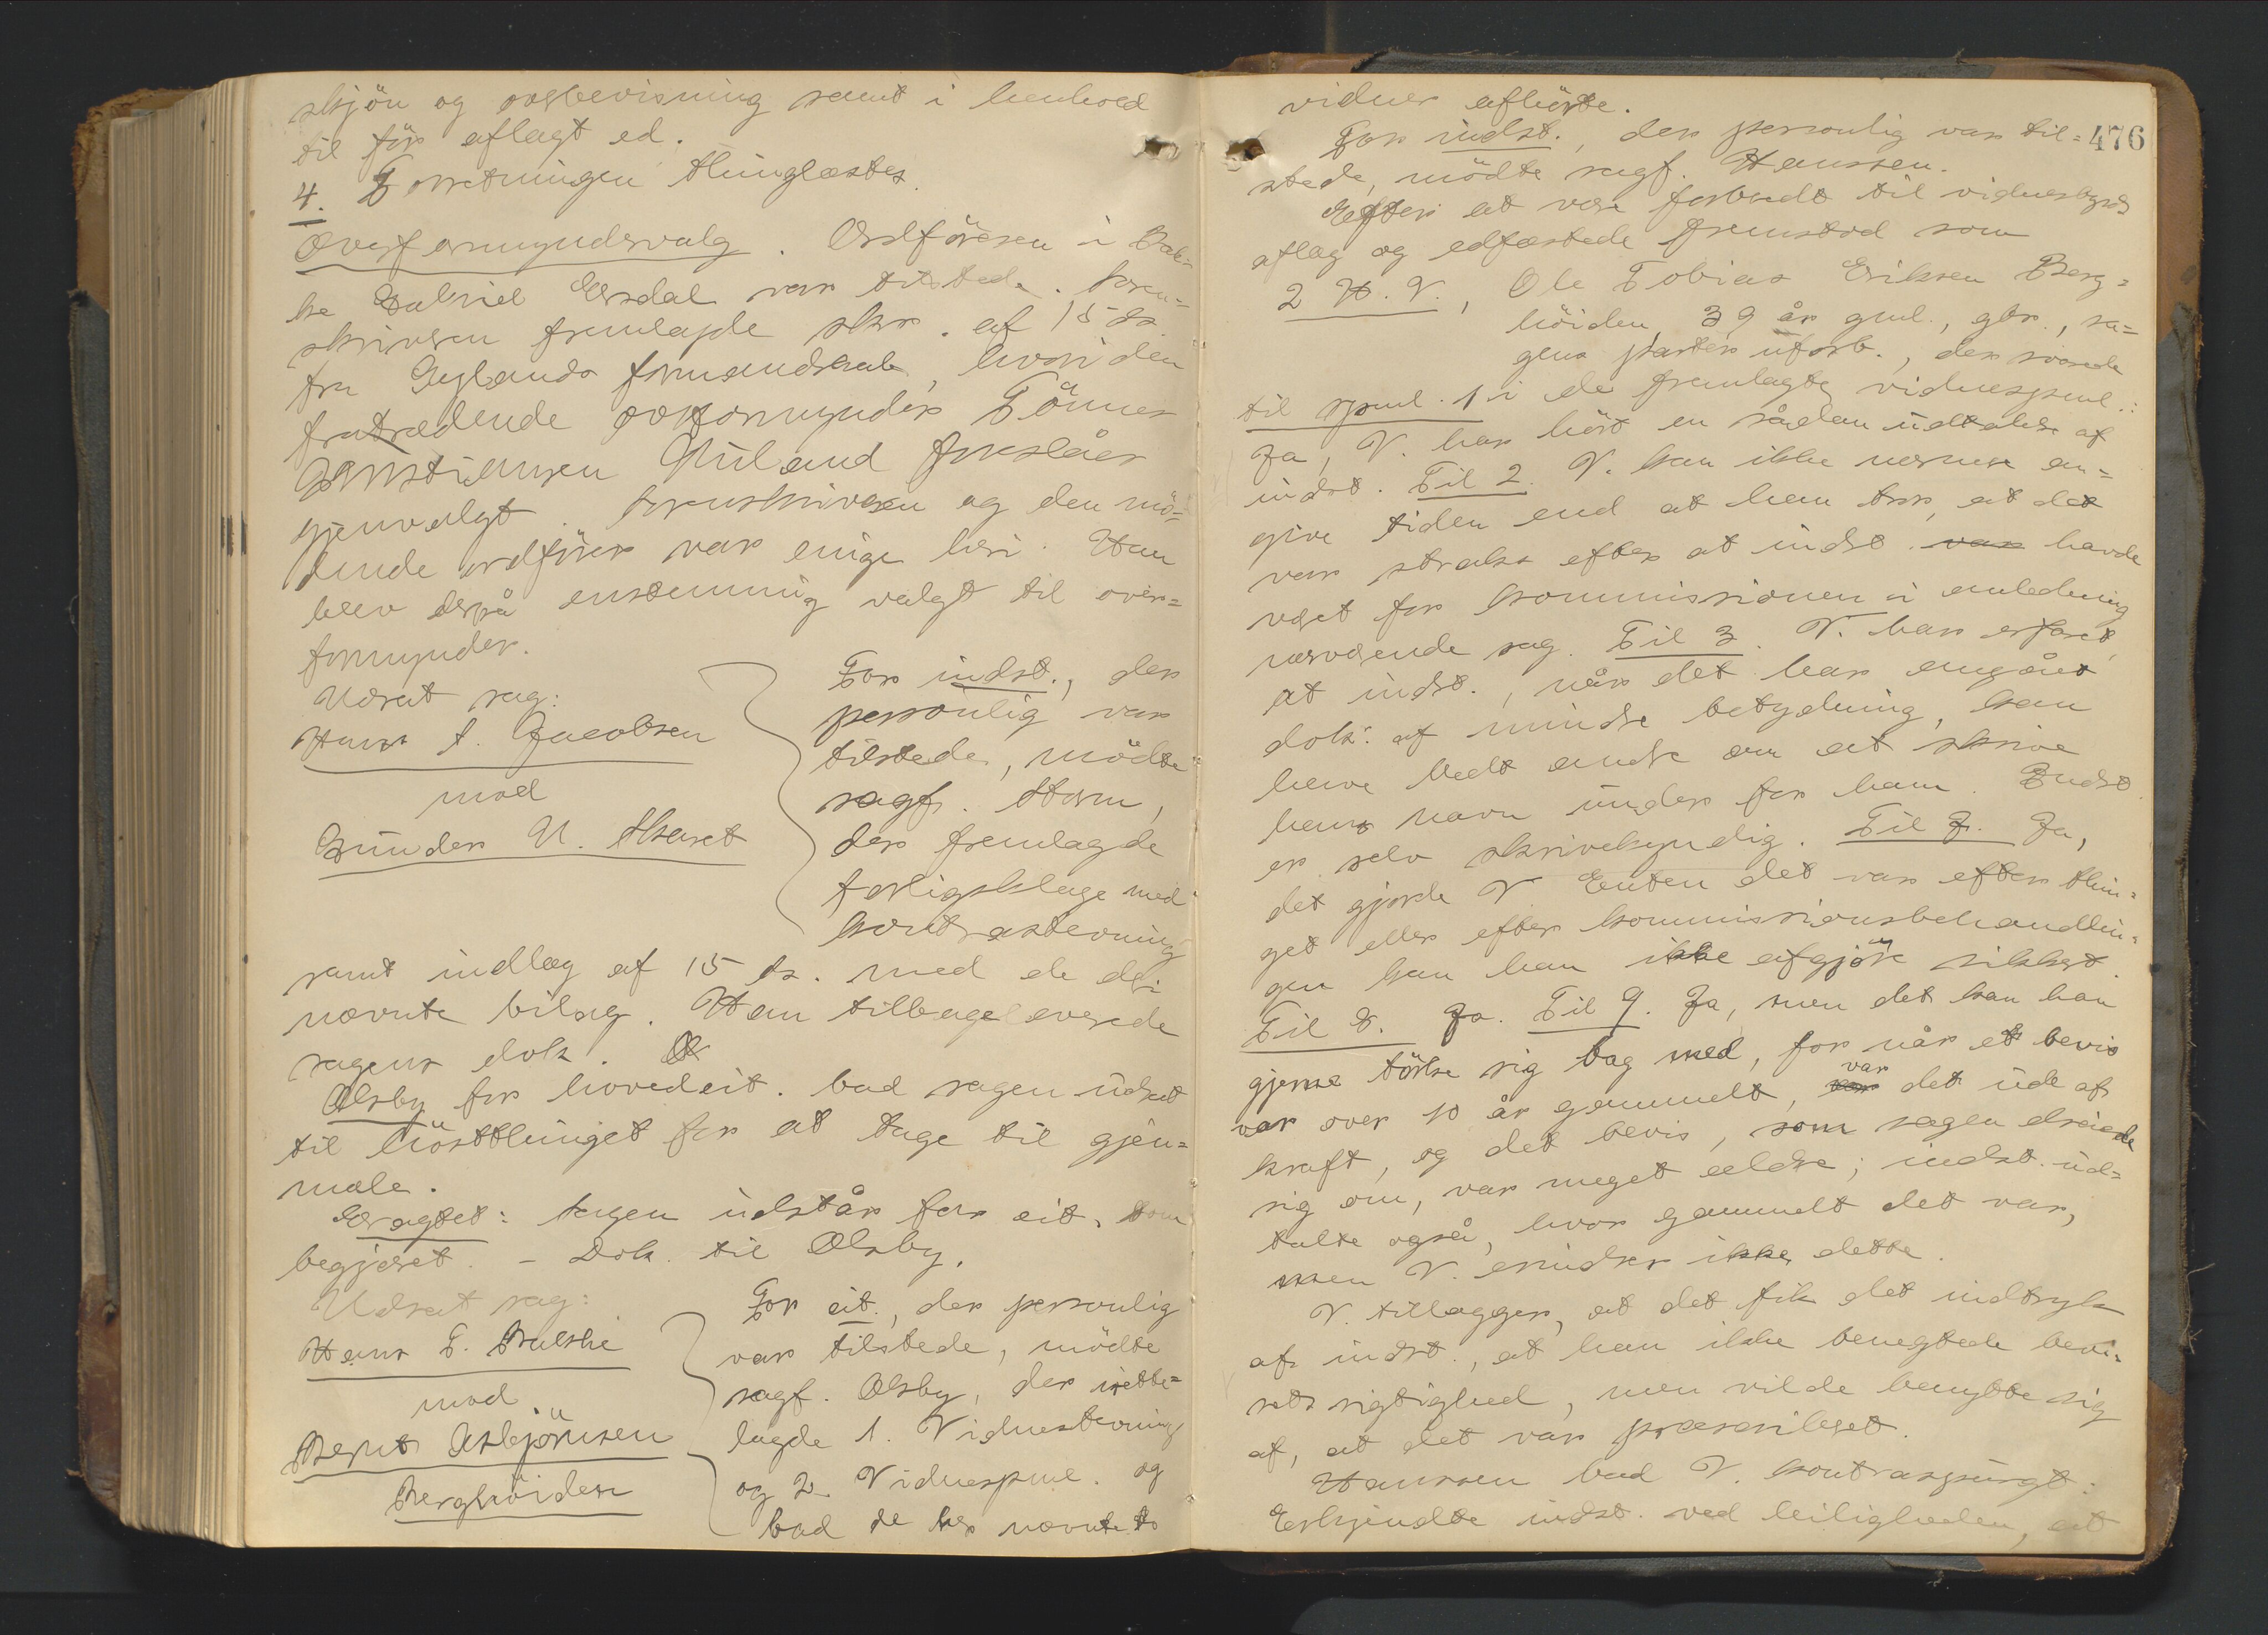 skjön og overbevisning samt i henhold
til før aflagt ed.
4. Forretningen thinglæstes.
Overformyndervalg. Ordføreren i Bak-
ke Gabriel Ersdal var tilstede. Soren-
skriveren fremlagde skr. af 15 ds.
fra Gylands formandskab, hvori den
fratrædende overformynder Tönnes
Kristiansen Nuland foreslåes
gjenvalgt. Sorenskriveren og den mö-
dende ordfører var enige heri. Han
blev derpå enstemmig valgt til over-
formynder.
Udsat sag:
Hans A. Jacobsen
mod
Gunder N. Skaret
For indst., der
personlig var
tilstede, mödte
sagf. Stern,
der fremlagde
forligsklage med
kontrastevning
samt indlæg af 15 ds. med de deri
nævnte bilag. Han tilbageleverede
sagens dok.
Olsby for hovedcit. bad sagen udsat
til hösttinget for at tage til gjen-
mæle.
Eragtet: Sagen udstår for cit. som
begjæret. - Dok. til Olsby.
Udsat sag:
Hans T. Bulski
mod
Bernt Asbjörnsen
Berghöiden
For cit., der personlig
var tilstede, mödte
sagf. Olsby, der irette-
lagde 1. Vidnestevning
og 2. Vidnespml. og
bad de her nævnte to
476
vidner afhørte.
For indst., der personlig var til-
stede, mödte sagf. Hanssen.
Efter at være forbredt til vidnesbyrds
aflæg og edfæstede fremstod som
2 H. V., Ole Tobias Eriksen Berg-
höiden, 39 år gml., gbr., sa-
gens parter uforb., der svarede
til spml. 1 i de fremlagte vidnespml.:
Ja, V. har hört en sådan udtalelse af
indst. Til 2. V. kan ikke nærmere an-
give tiden end at han tror, at det
var straks efter at indst. var havde
været for kommissionen i anledning
nærværende sag. Til 3. V. har erfaret,
at indst., når det har angået
dok. af mindre betydning, kan
have bedt andre om at skrive
hans navn under for ham. Indst.
er selv skrivekyndig. Til 7. Ja,
det gjorde V. Enten det var efter thin-
get eller efter kommissionsbehandlin-
gen kan han ikke afgjöre sikkert.
Til 8. Ja. Til 9. Ja, men det kan han
gjerne törke sig bag med, for når et bevis
var over 10 år gammelt, var det ude af
kraft, og det bevis, som sagen dreiede
sig om, var meget ældre; indst. ud-
talte også, hvor gammelt det var,
men V. erindrer ikke dette.
V. tillægger, at det fik det indtryk
af indst., at han ikke benegtede bevi-
sets rigtighed, men vilde benytte sig
af, at det var præskriberet.
Hanssen bad V. kontraspurgt:
Erkjendte indst. ved leiligheden, at